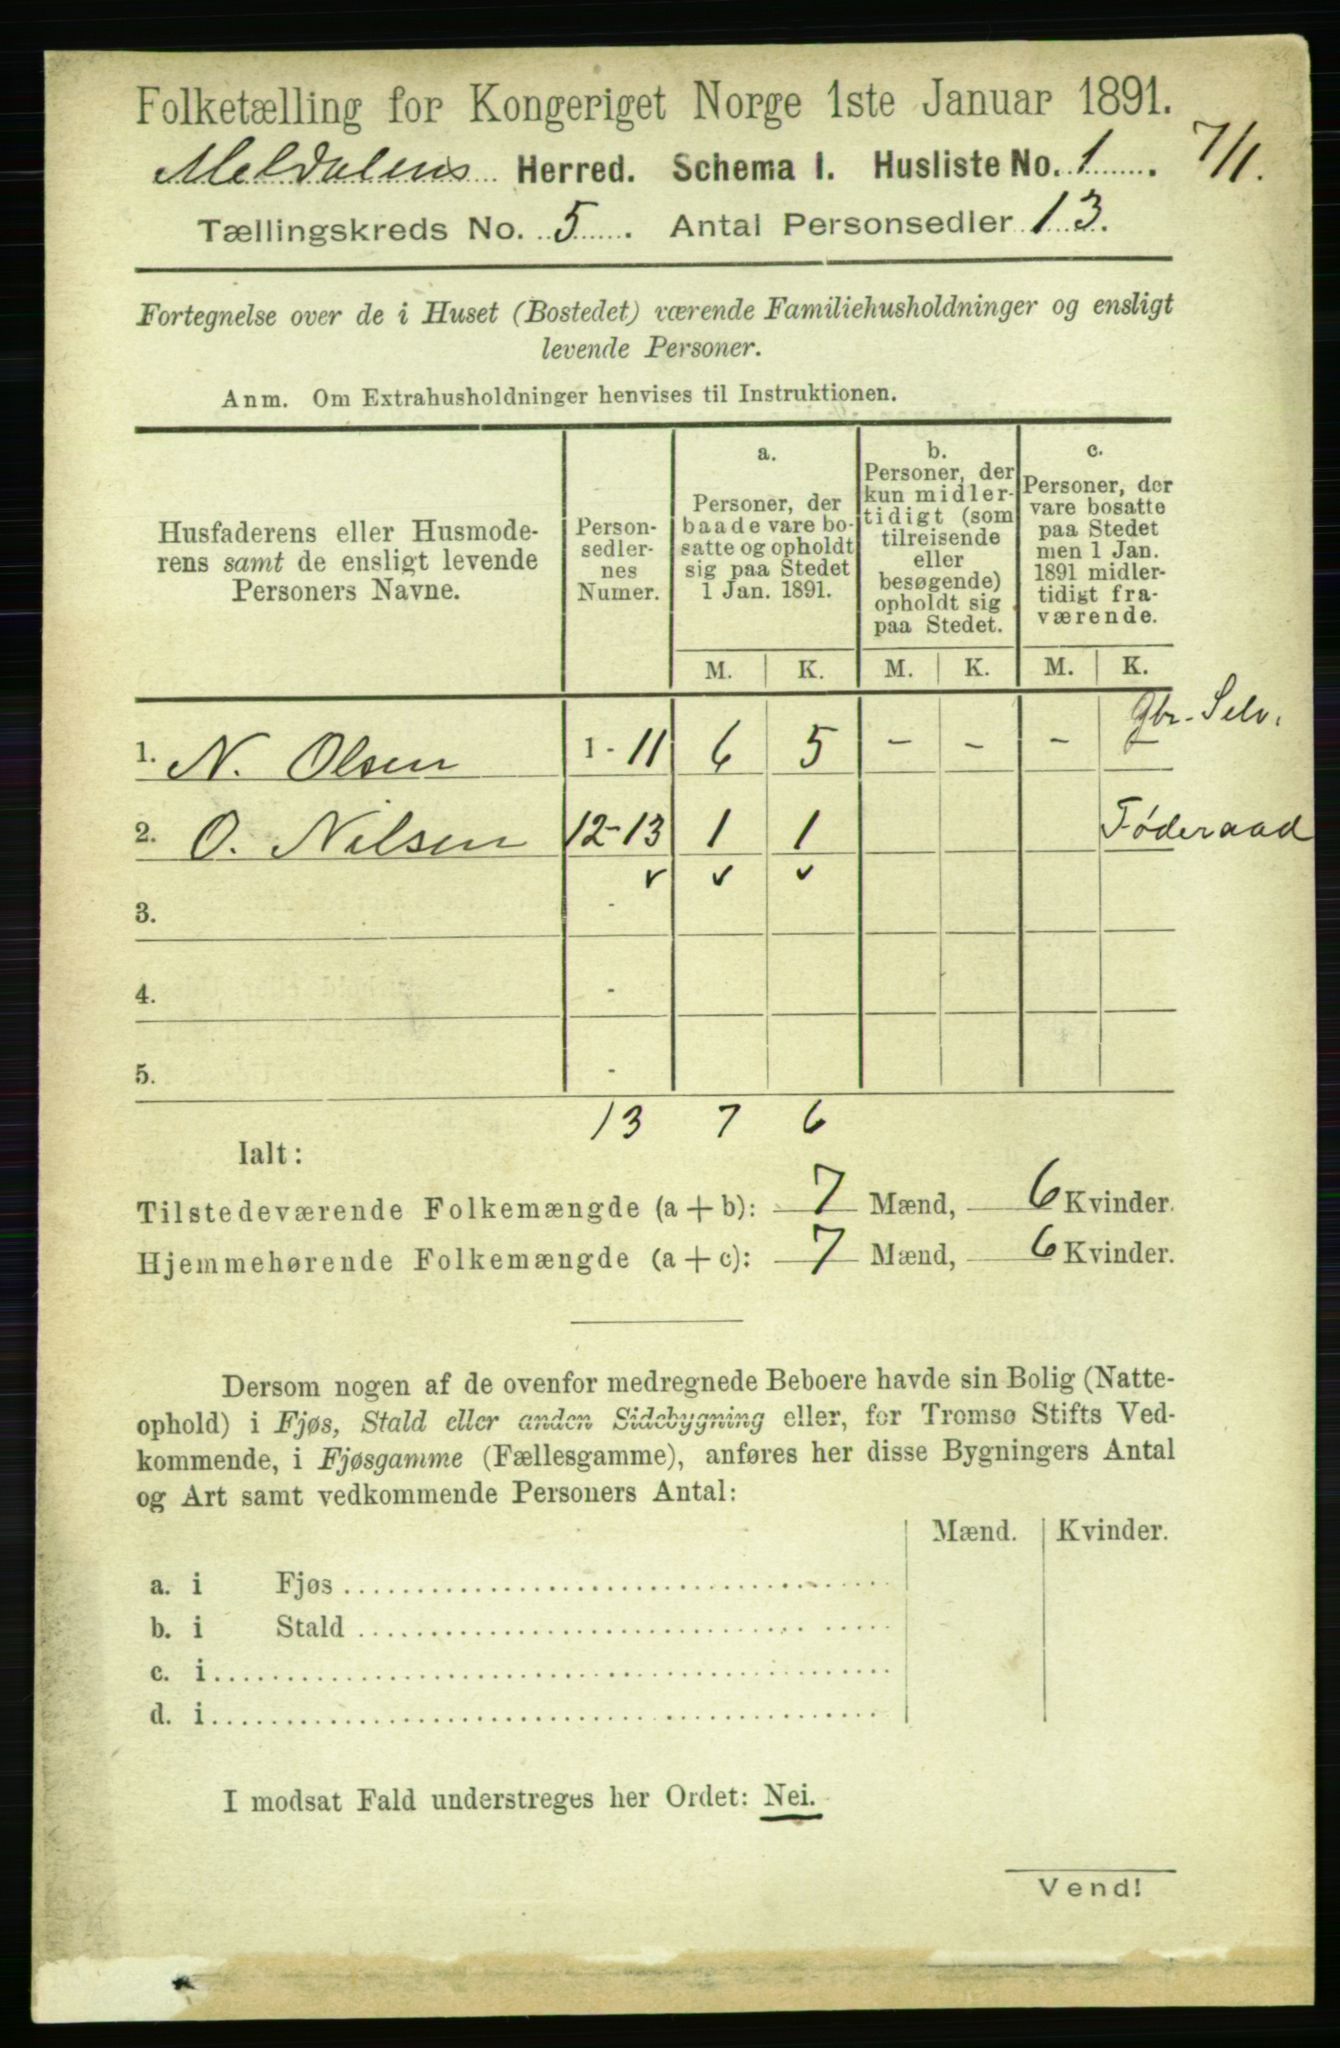 Folketælling for Kongeriget Norge 1ste Januar 1891.
Meldalens Herred. Schema I. Husliste No. 1. 7/1.
Tællingskreds No. 5. Antal Personsedler 13.
Fortegnelse over de i Huset (Bostedet) værende Familiehusholdninger og ensligt
levende Personer.
Anm. Om Extrahusholdninger henvises til Instruktionen.
Husfaderens eller Husmode-
rens samt de ensligt levende
Personers Navne.
Person-
sedler-
nes
Numer.
a.
Personer, der
baade vare bo-
satte og opholdt
sig paa Stedet
1 Jan. 1891.
b.
Personer, der
kun midler-
tidigt (som
tilreisende
eller
besøgende)
opholdt sig
paa Stedet.
c.
Personer, der
vare bosatte
paa Stedet
men 1 Jan.
1891 midler-
tidigt fra-
værende.
M. K. M. K. M. K.
Gbr. Selv.
1. N. Olsen 1 - 11 6 5 - - - -
2. O. Nilsen 12-13 1 1 Føderaad
✓ ✓ ✓
3. -
4. -
5. -
13 7 6
Ialt:
Tilstedeværende Folkemængde (a + b): 7 Mænd, 6 Kvinder.
Hjemmehørende Folkemængde (a + c): 7 Mænd, 6 Kvinder.
Dersom nogen af de ovenfor medregnede Beboere havde sin Bolig (Natte-
ophold) i Fjøs, Stald eller anden Sidebygning eller, for Tromsø Stifts Ved-
kommende, i Fjøsgamme (Fællesgamme), anføres her disse Bygningers Antal
og Art samt vedkommende Personers Antal:
Mænd. Kvinder.
a. i Fjøs
b. i Stald
c. i
d. i
I modsat Fald understreges her Ordet: Nei.
Vend!